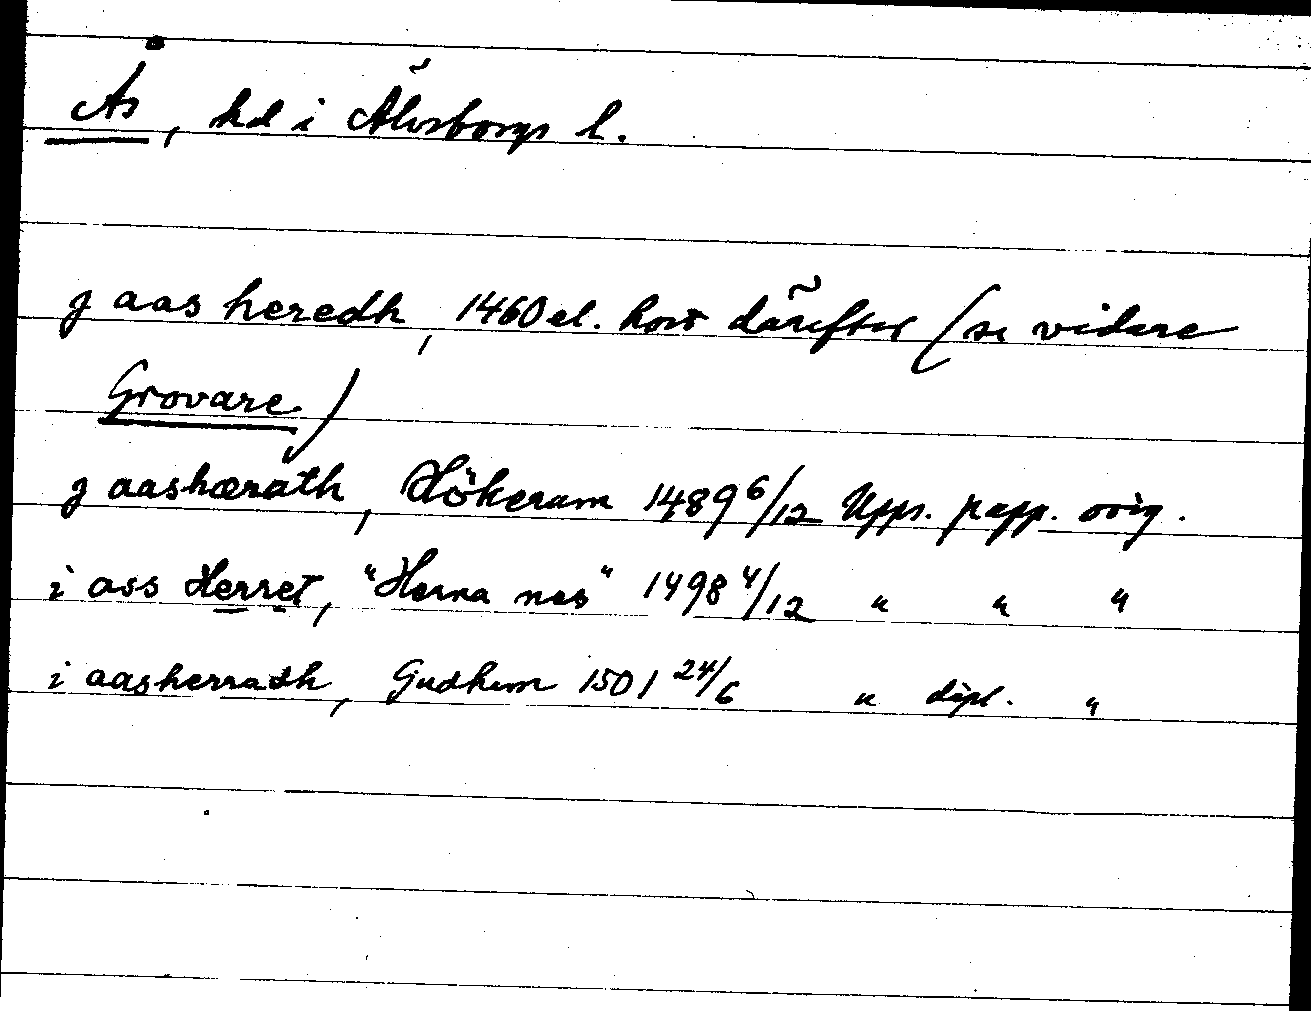 Ås, hd i Älvsborgs l.
j aas heredh, 1460 el. kort därefter (se vidare
Grovare)
j aashærath, Hökerum 1489 6/12 Upps. papp. orig.
i ass Herret, "Herna nes" 1498 4/12 " " "
i aasherradh, Gudhem 1501 24/6 " dipl. "